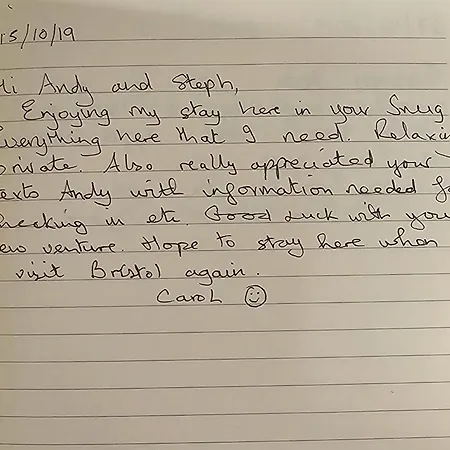 15/10/19
Hi Andy and Steph,
Enjoying my stay here in your Snug
Everything here that I need. Relaxin
private. Also really appreciated your
texts Andy with information needed fo
checking in etc. Good Luck with you
new venture. Hope to stay here when
visit Bristol again.
Carol ☺